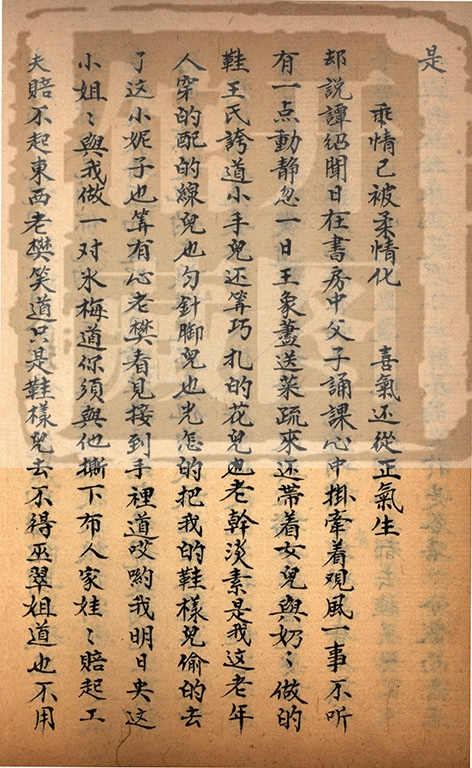 是
乖情已被柔情化　喜氣还從正氣生
却説譚紹聞日在書房中父子誦課心中掛牽着观風一事不听
有一点動静忽一日王象藎送菜疏來还帶着女兒與奶〻做的
鞋王氏誇道小手兒还筭巧扎的花兒也老幹淡素是我这老年
人穿的配的線兒也匀針脚兒也光怎的把我的鞋樣兒偷的去
了这小妮子也筭有心老樊看見接到手裡道哎喲我明日央这
小姐〻與我做一对氷梅道你須與他撕下布人家娃〻賠起工
夫賠不起東西老樊笑道只是鞋樣兒去不得巫翠姐道也不用